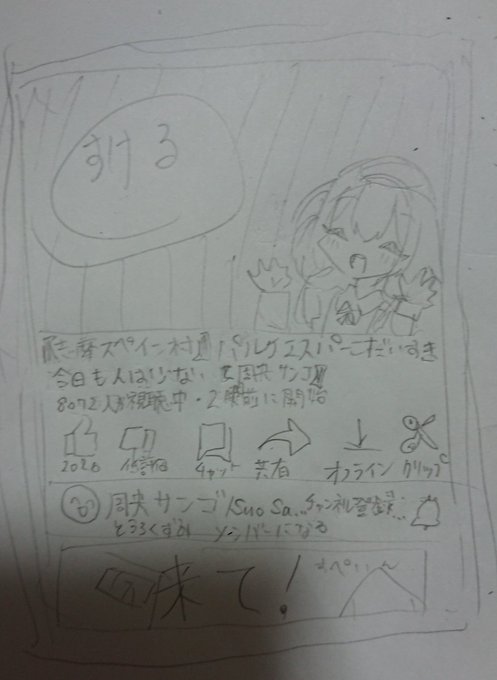 すける
【志摩スペイン村】パルケエスパーニャだいすき
今日も人は少ない【周央サンゴ】
8072人が視聴中・2時間前に開始
2020 低評価 チャット 共有 オフライン クリップ
周央サンゴ/Suo Sa... チャンネル登録
とうろくずみ メンバーになる
来て! すぺいん